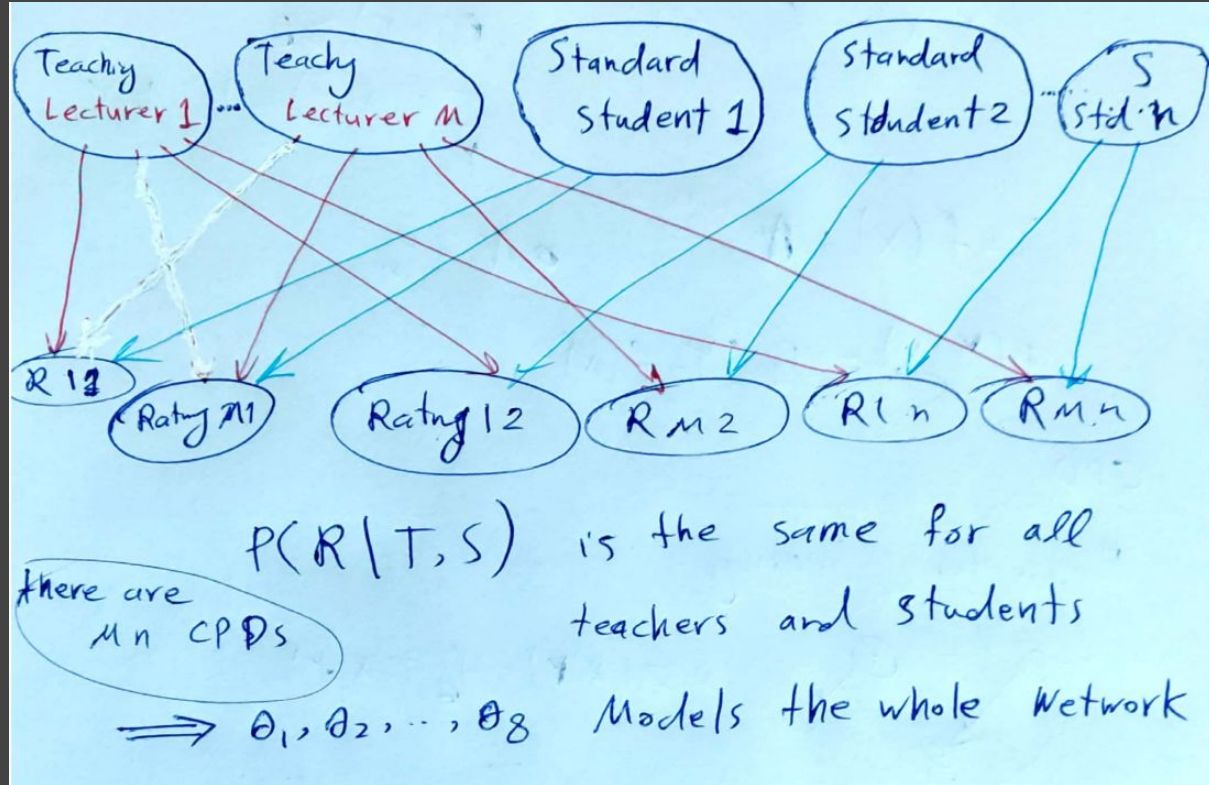 Teachiy
Lecturer 1
...
Teachy
Lecturer M
Standard
Student 1
Standard
Student 2
...
S
Std.n
R 11
Ratng M1
Ratng 12
R M 2
R 1 n
R M n
P(R|T,S) is the same for all
teachers and students
there are
M n CPDs
⟹ θ1, θ2, .., θ8 Models the whole Network